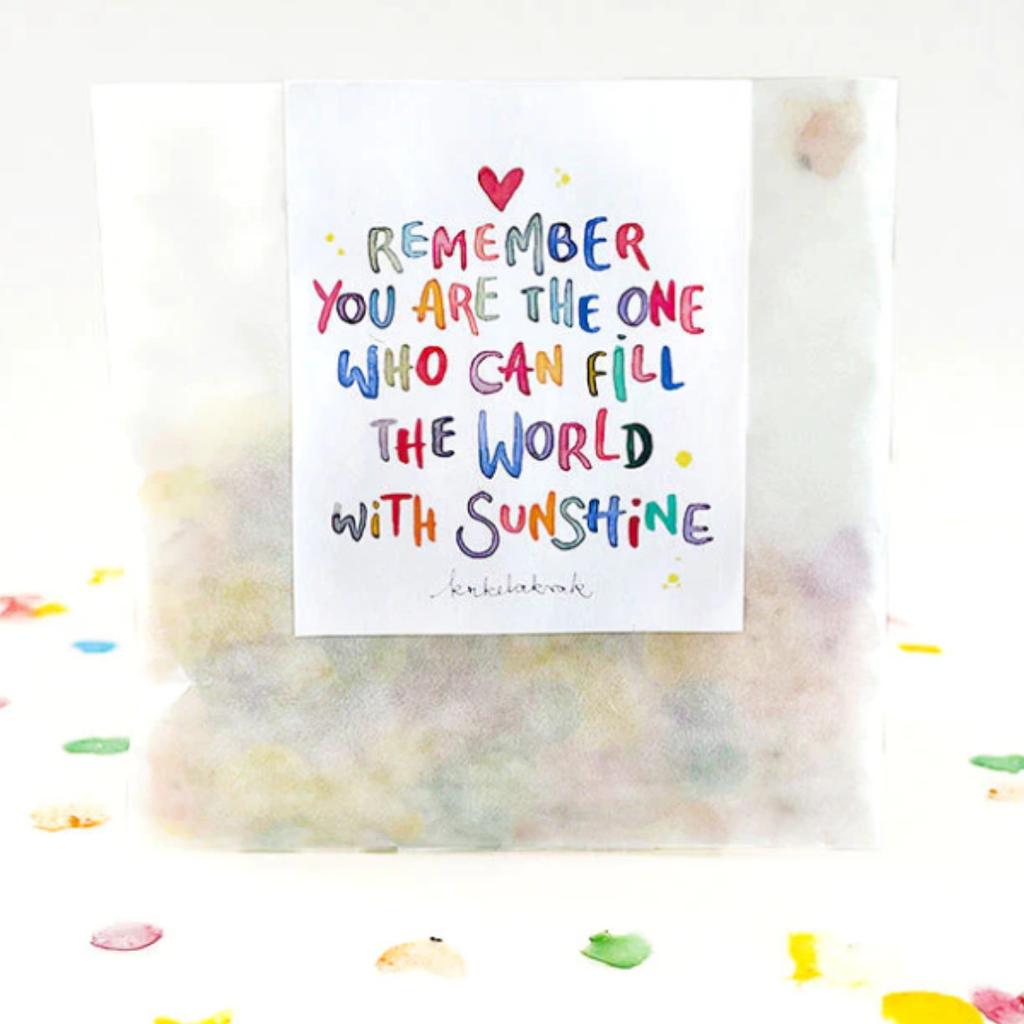 REMEMBER
YOU ARE THE ONE
WHO CAN FiLL
THE WORLD
WiTH SUNSHiNE